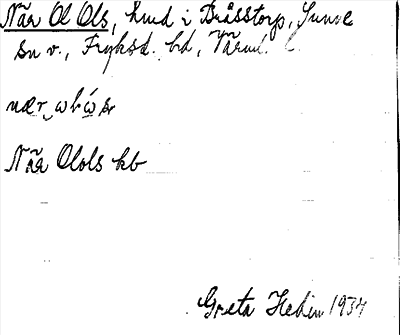 När Ol Ols, hmd i Bråsstorp, Sunne
sn v., Fryksd. hd, Värml.
När Olols kb
Greta Hedin 1934